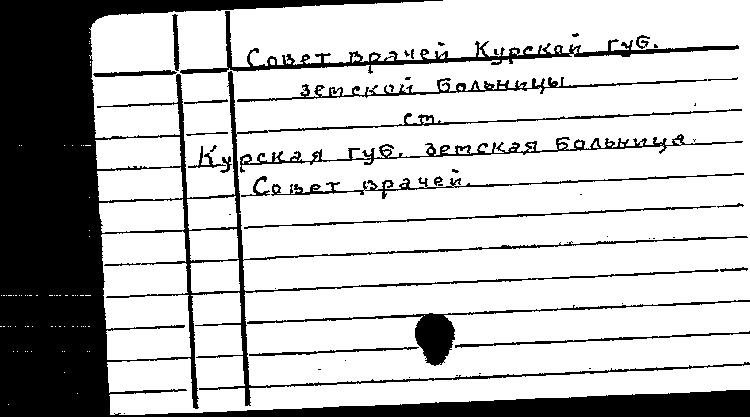 Совет врачей Курской губ.
земской больницы
см.
Курская губ. земская больница.
Совет врачей.